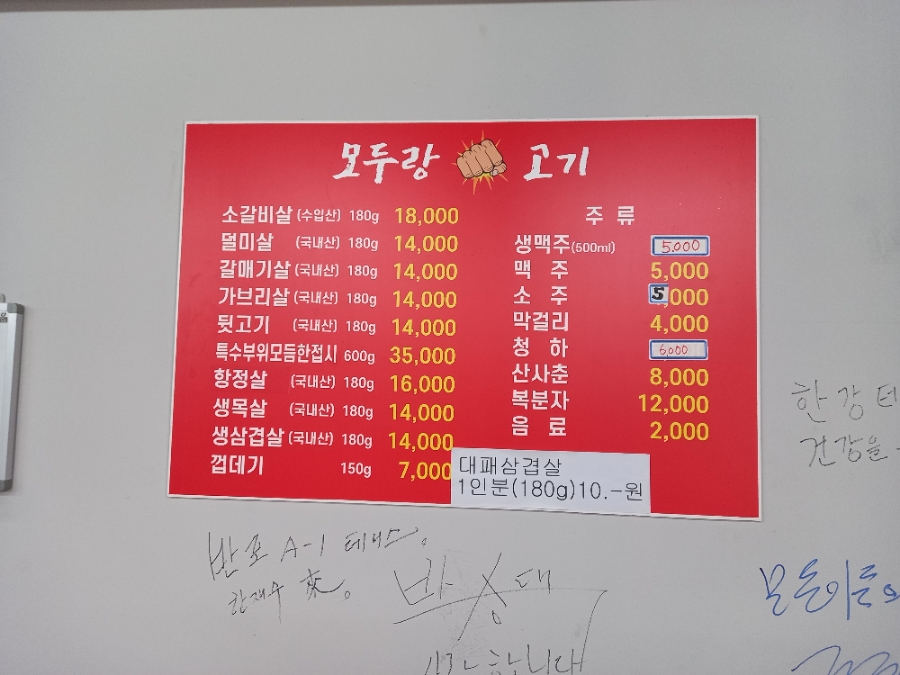 모두랑 고기
소갈비살 (수입산) 180g 18,000
덜미살 (국내산) 180g 14,000
갈매기살 (국내산) 180g 14,000
가브리살 (국내산) 180g 14,000
뒷고기 (국내산) 180g 14,000
특수부위모듬한접시 600g 35,000
항정살 (국내산) 180g 16,000
생목살 (국내산) 180g 14,000
생삼겹살 (국내산) 180g 14,000
껍데기 150g 7,000
주 류
생맥주(500ml) 5,000
맥 주 5,000
소 주 5,000
막걸리 4,000
청 하 6,000
산사춘 8,000
복분자 12,000
음 료 2,000
대패삼겹살
1인분(180g)10.-원
한강테
건강을
반포 A-1 테니스.